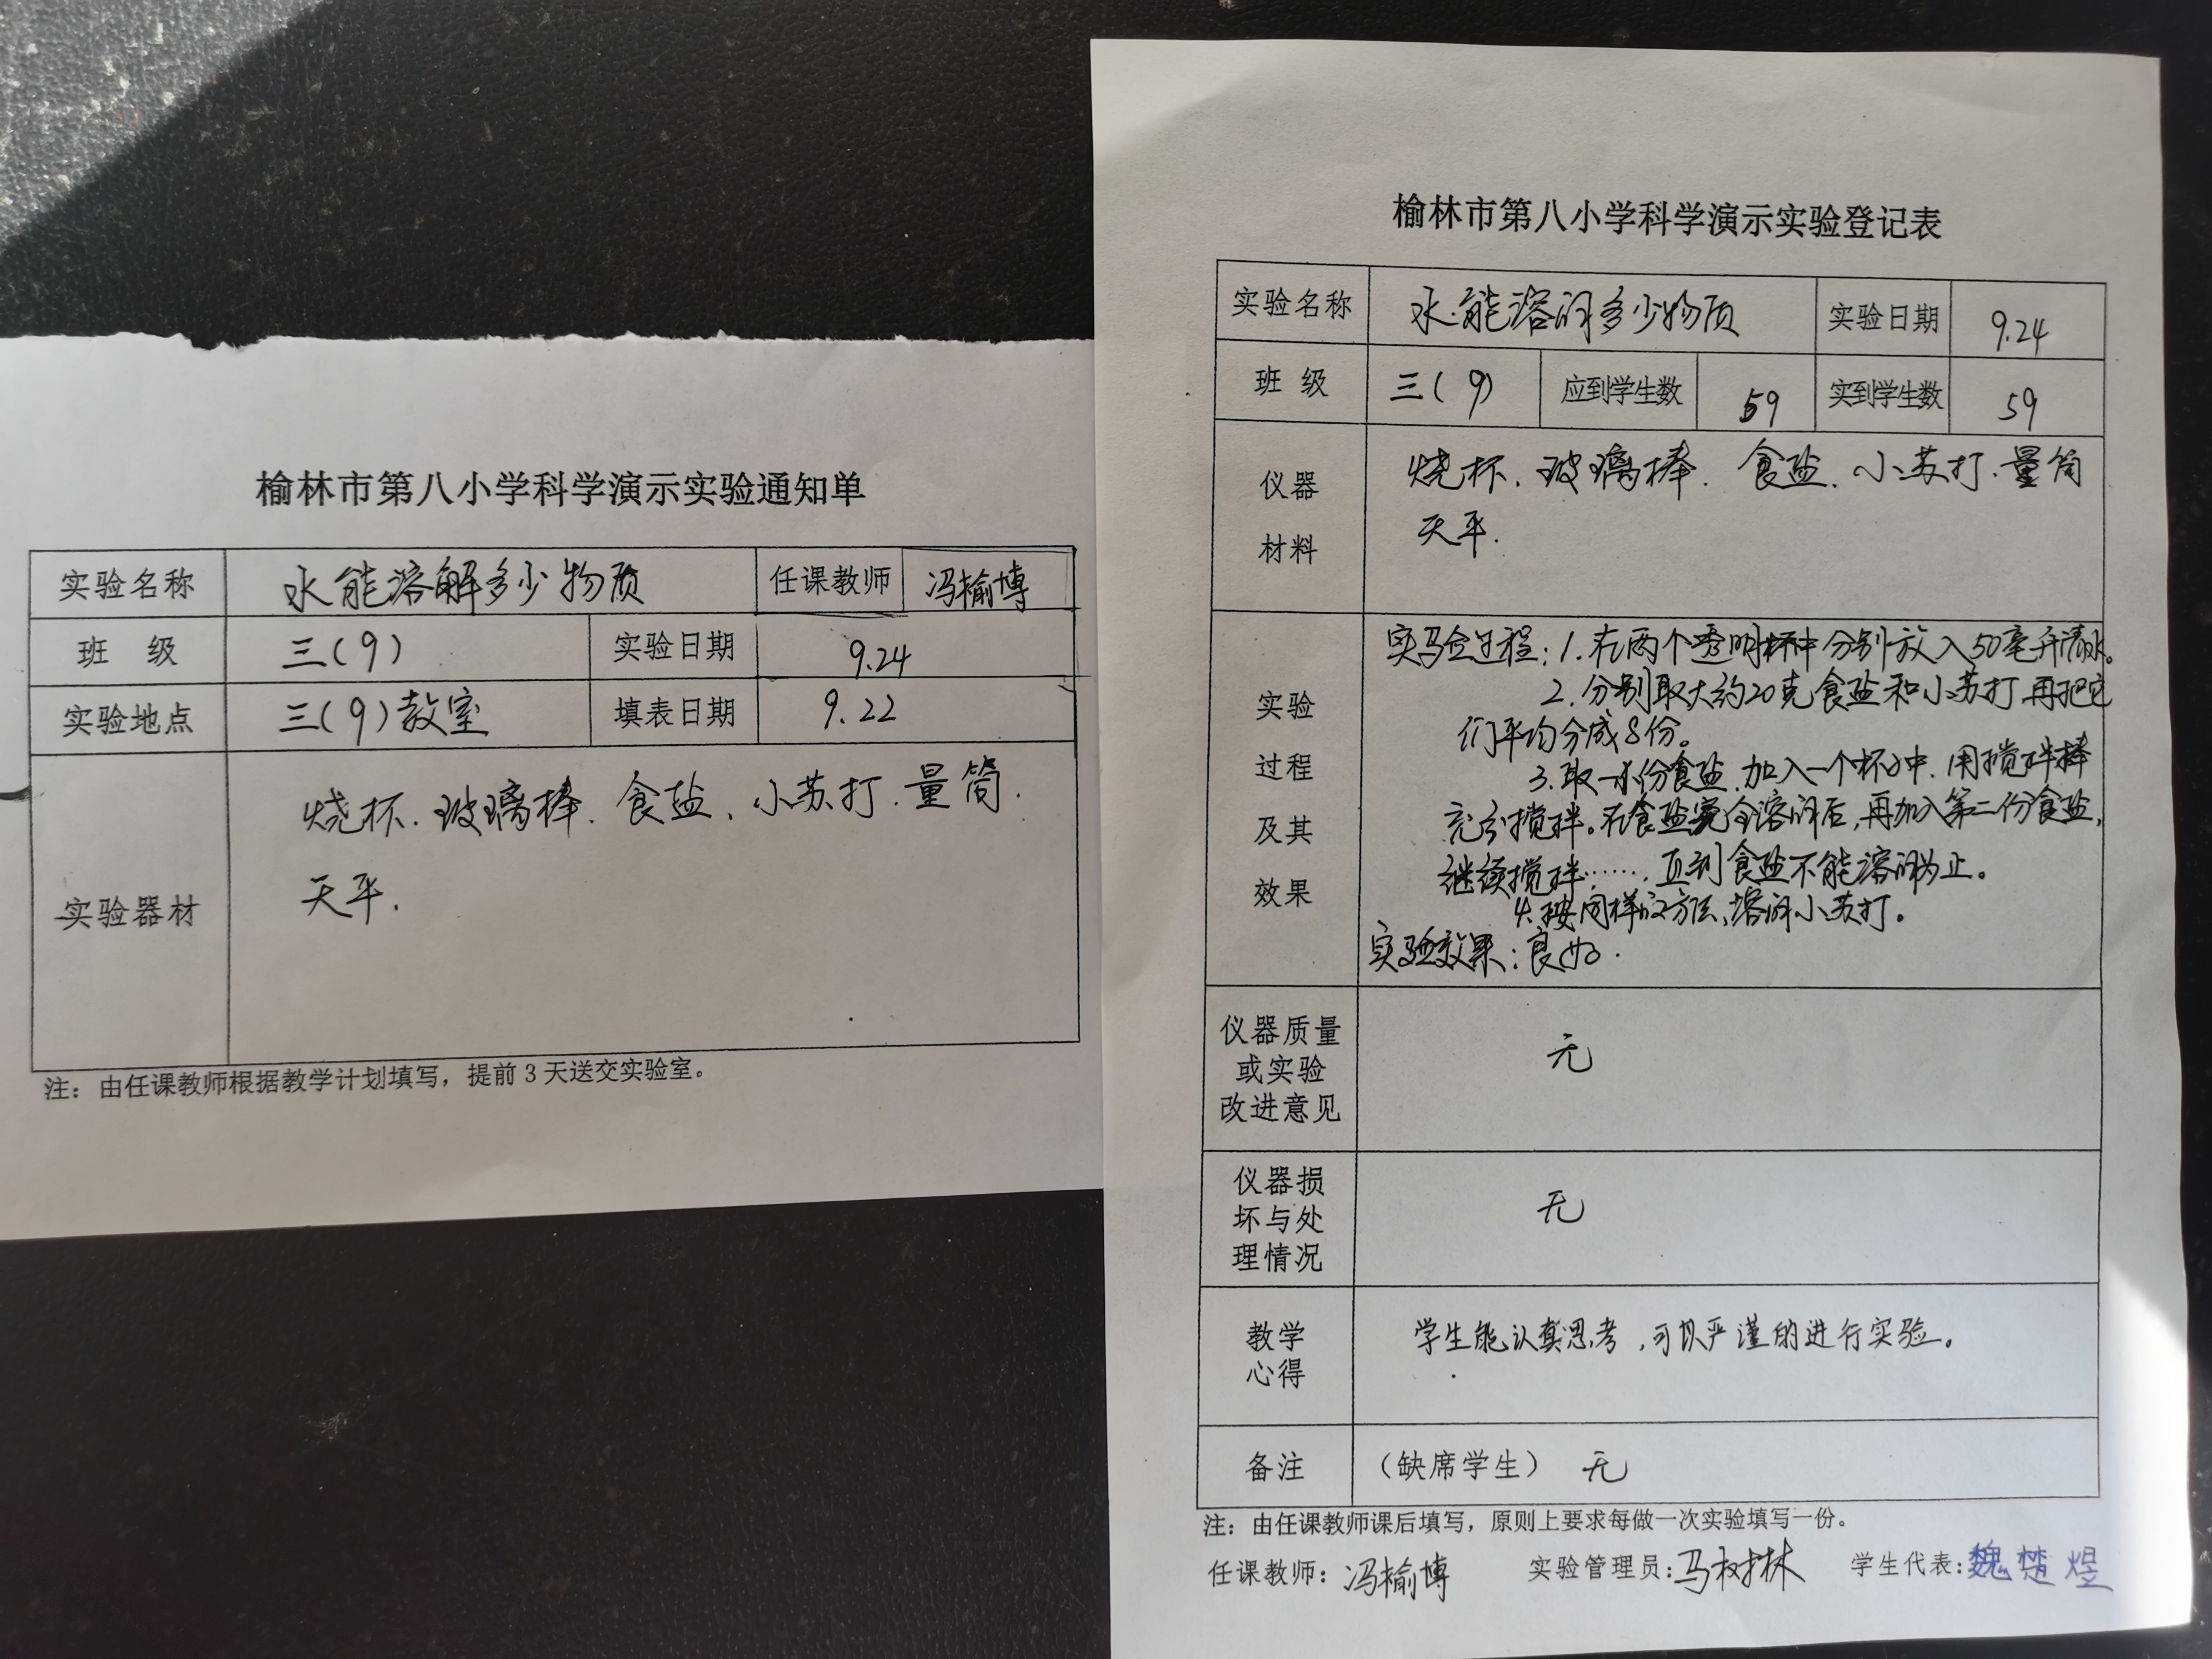 榆林市第八小学科学演示实验通知单
实验名称 水能溶解多少物质 任课教师 冯榆博
班 级 三(9) 实验日期 9.24
实验地点 三(9)教室 填表日期 9.22
实验器材 烧杯.玻璃棒.食盐、小苏打.量筒.
天平.
注：由任课教师根据教学计划填写，提前3天送交实验室。
榆林市第八小学科学演示实验登记表
实验名称 水能溶解多少物质 实验日期 9.24
班 级 三(9) 应到学生数 59 实到学生数 59
仪器材料 烧杯.玻璃棒.食盐.小苏打.量筒
天平.
实验过程及其效果
实验过程:1.在两个透明杯中分别放入50毫升清水。
2.分别取大约20克食盐和小苏打,再把它
们平均分成8份。
3.取一份食盐,加入一个杯子中.用搅拌棒
充分搅拌。在食盐完全溶解后,再加入第二份食盐,
继续搅拌……,直到食盐不能溶解为止。
4.按同样的方法,溶解小苏打。
实验效果:良好.
仪器质量或实验改进意见 无
仪器损坏与处理情况 无
教学心得 学生能认真思考,可以严谨的进行实验。
备注 （缺席学生） 无
注：由任课教师课后填写，原则上要求每做一次实验填写一份。
任课教师：冯榆博 实验管理员:马树林 学生代表:魏楚煜